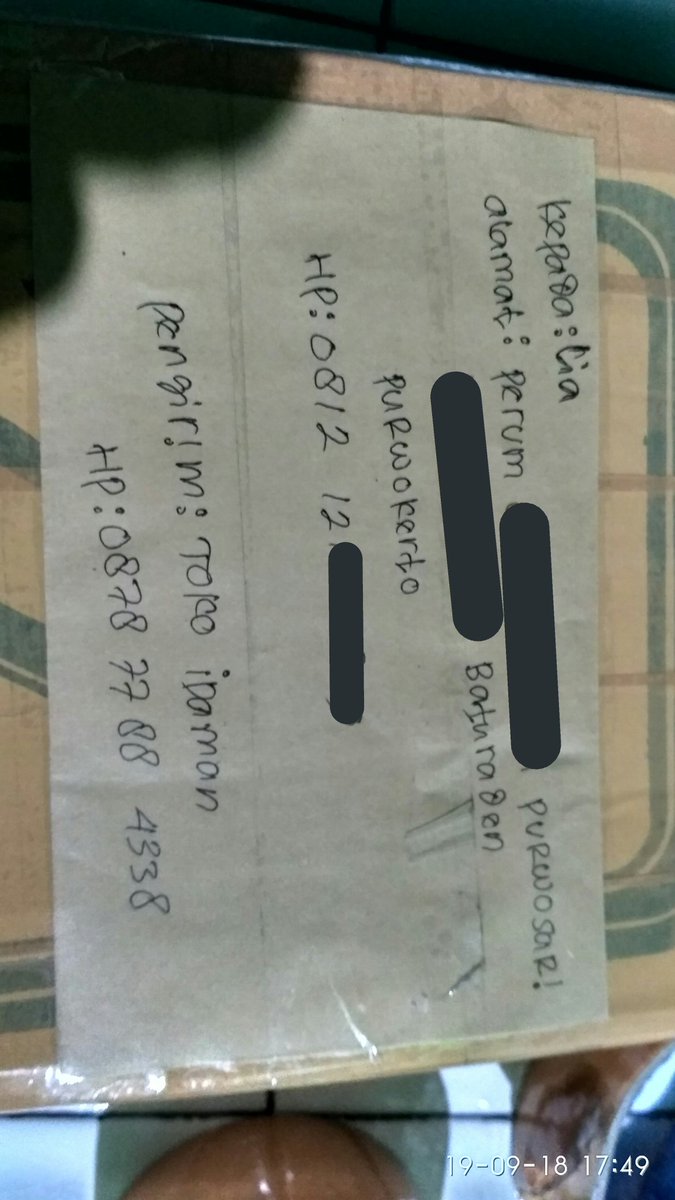 Kepada : Lia
alamat : perum purwosari
Baturaden
purwokerto
HP : 0812 12
pengirim : Toko idaman
HP : 0878 7788 4338
19-09-18 17:49